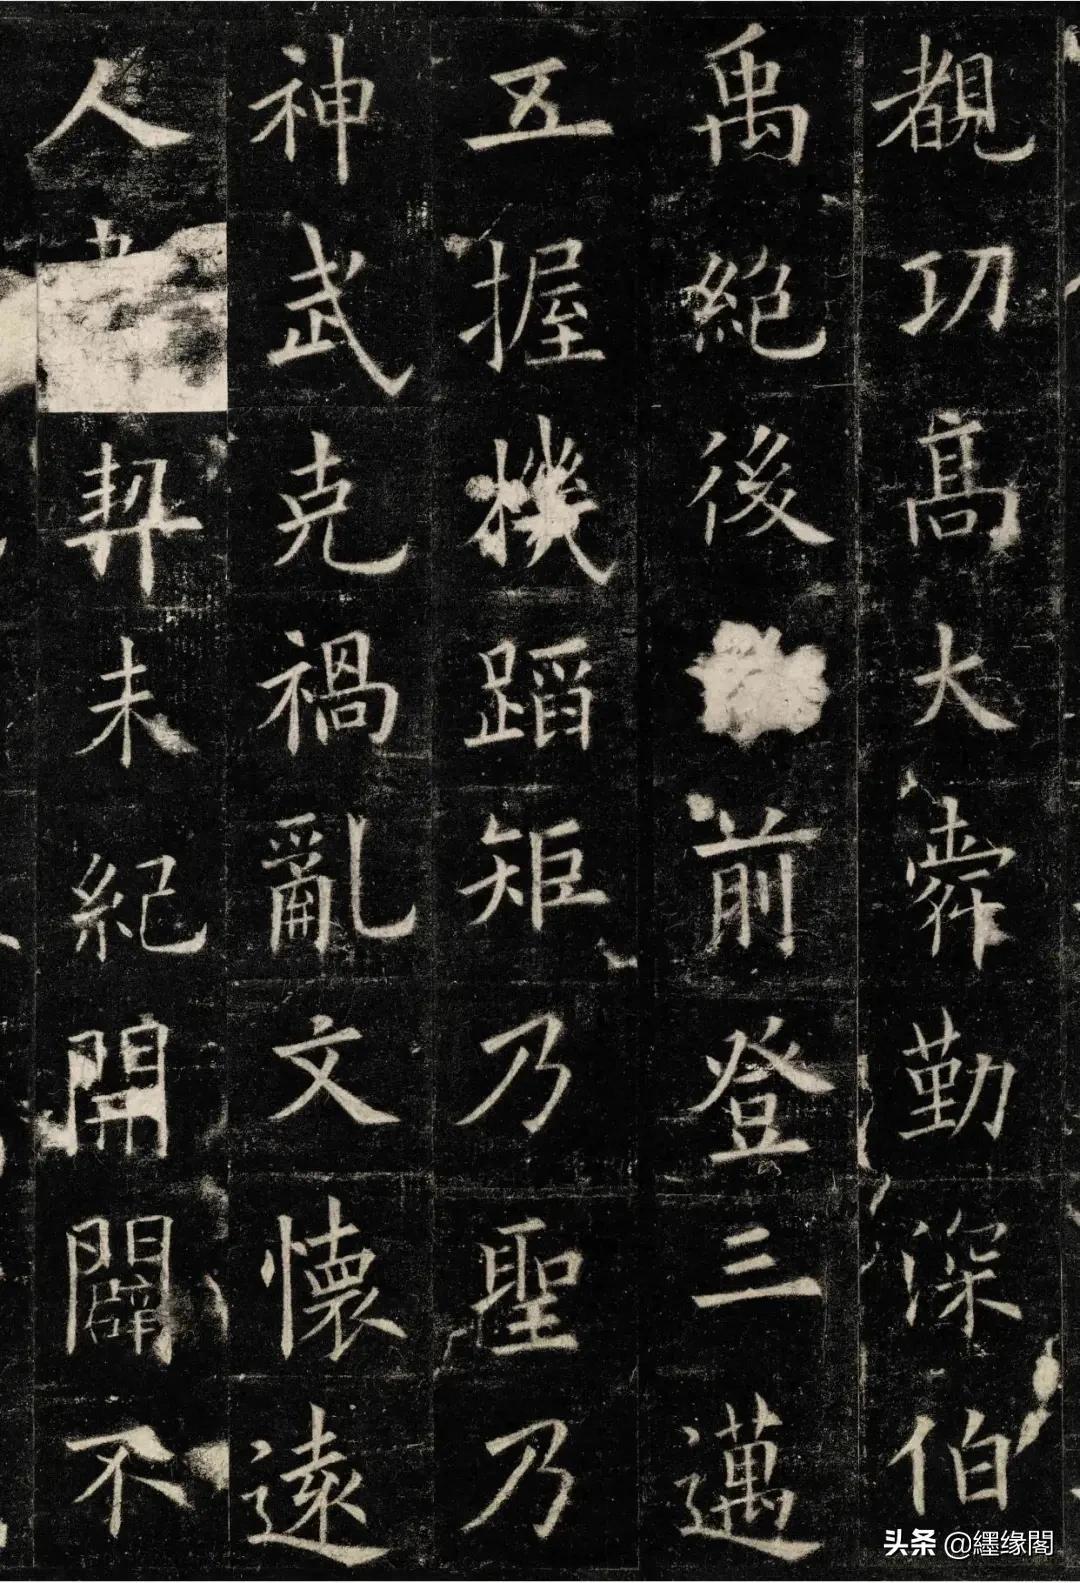 覩功高大舜勤深伯
禹絶後前登三邁
五握機蹈矩乃聖乃
神武克禍亂文懷遠
人契未紀開闢不
头条 @纆缘閣